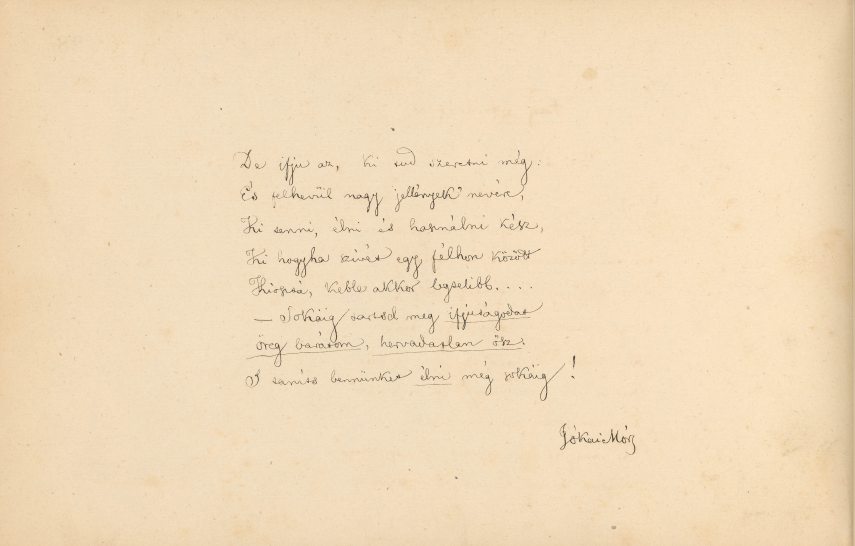 De ifju az, ki tud szeretni még.
És felhevül nagy jellemyek' nevére,
Ki tenni, élni és használni kész,
Ki hogyha szívét egy félhon között
Kiosztá, keble akkor legtelibb....
— Sokáig tartsd meg ifjuságodat
öreg barátom, hervadatlan ősz.
S taníts bennünket élni még sokáig!
Jókai Mór